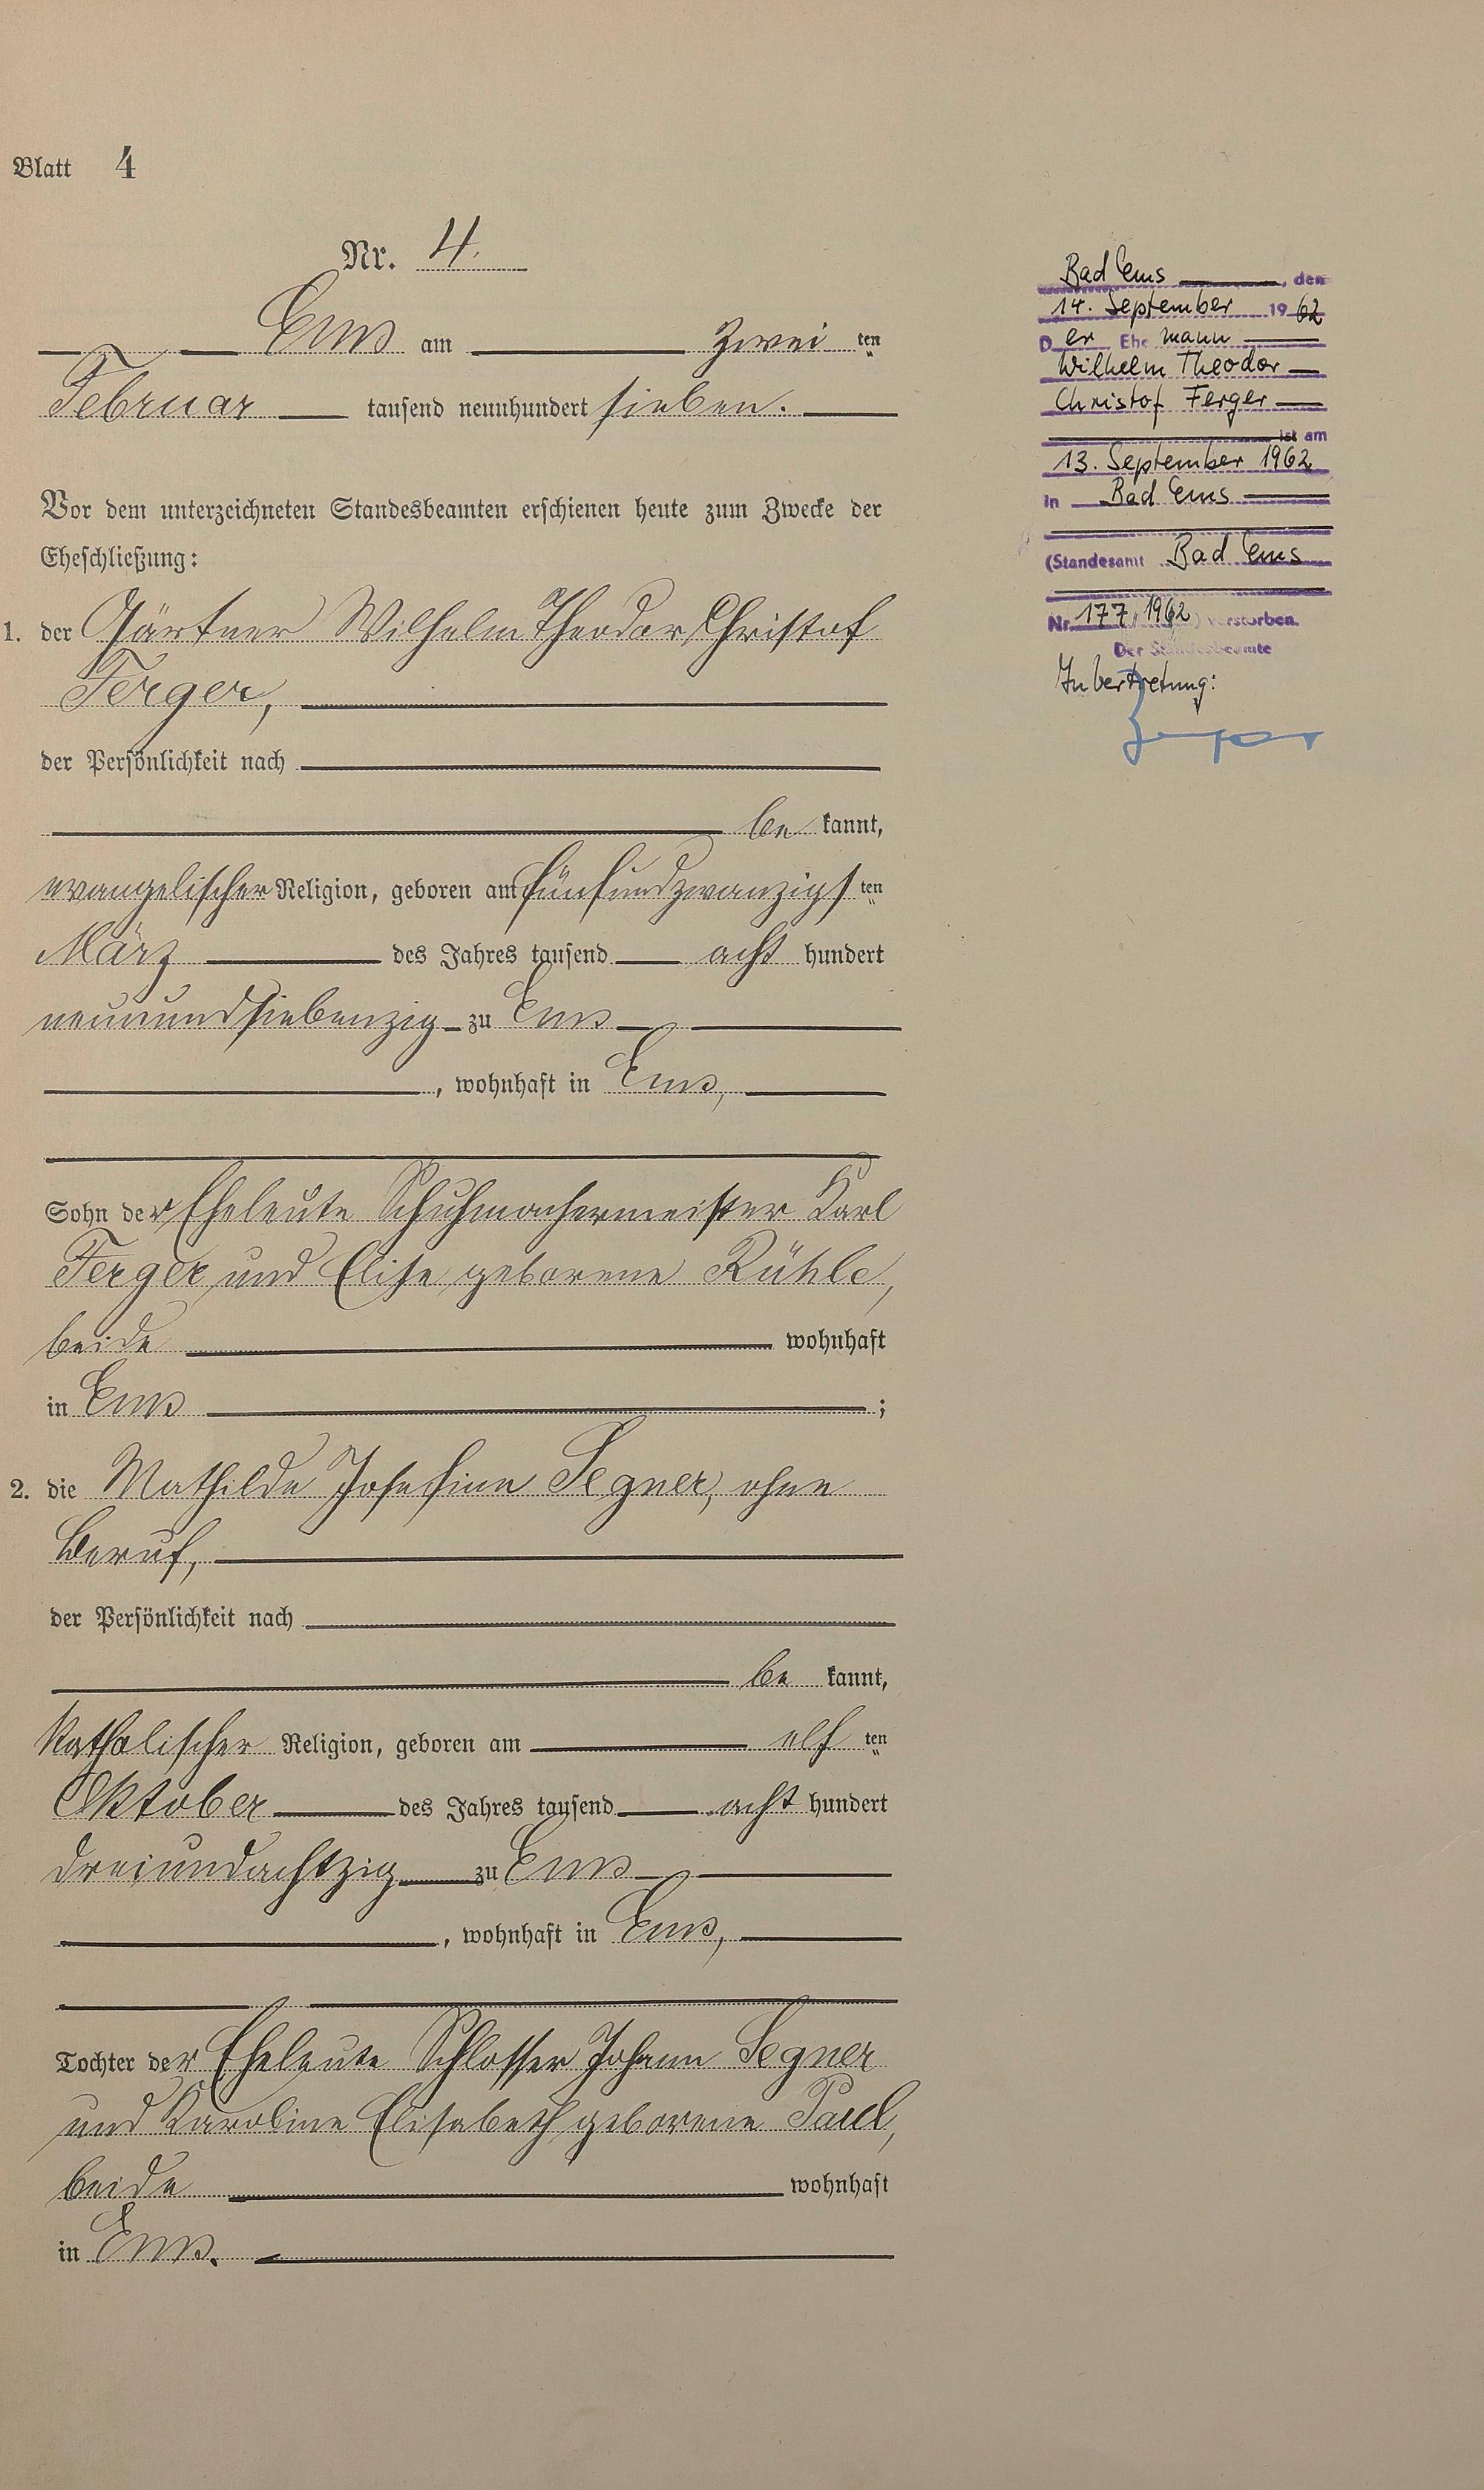 Blatt 4
Nr. 4.
Ems am zwei ten
Februar tausend neunhundert sieben.
Vor dem unterzeichneten Standesbeamten erschienen heute zum Zwecke der
Eheschließung:
1. der Gärtner Wilhelm Theodor Christof
Ferger,
der Persönlichkeit nach
be kannt,
evangelischer Religion, geboren am fünfundzwanzigs ten
März des Jahres tausend acht hundert
neunundsiebenzig zu Ems
, wohnhaft in Ems,
Sohn der Eheleute Schuhmachermeister Karl
Ferger und Elise geborene Rühle,
beide wohnhaft
in Ems ;
2. die Mathilde Josefine Segner, ohne
Beruf,
der Persönlichkeit nach
be kannt,
katholischer Religion, geboren am elf ten
Oktober des Jahres tausend acht hundert
dreiundachtzig zu Ems
, wohnhaft in Ems,
Tochter der Eheleute Schlosser Johann Segner
und Karoline Elisabeth geborene Paul,
beide wohnhaft
in Ems.
Bad Ems, den
14. September 1962
D er Ehe mann
Wilhelm Theodor
Christof Ferger
ist am
13. September 1962
in Bad Ems
(Standesamt Bad Ems
Nr. 177/1962) verstorben.
Der Standesbeamte
In Vertretung: